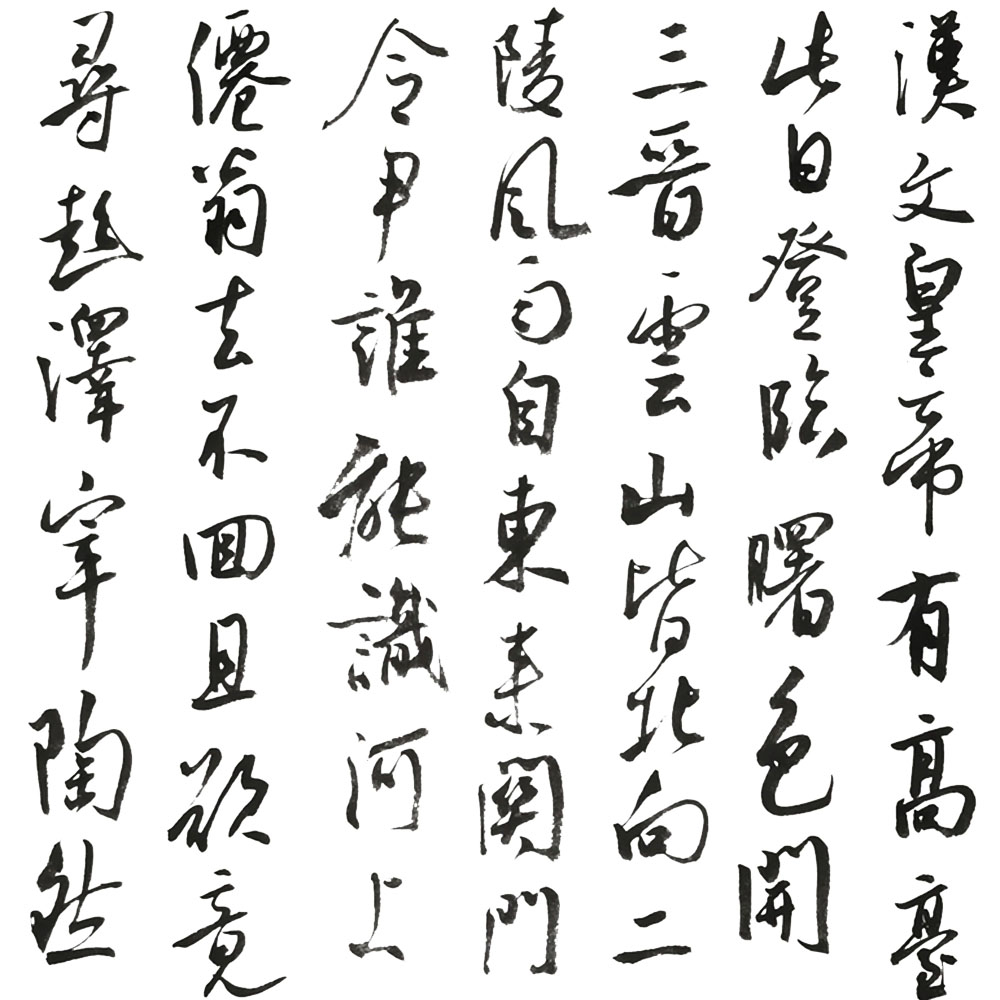 漢文皇帝有高臺
此日登臨曙色開
三晉雲山皆北向二
陵風雨自東来関門
令尹誰能識河上
僊翁去不囬且欲竟
尋彭澤宰陶然